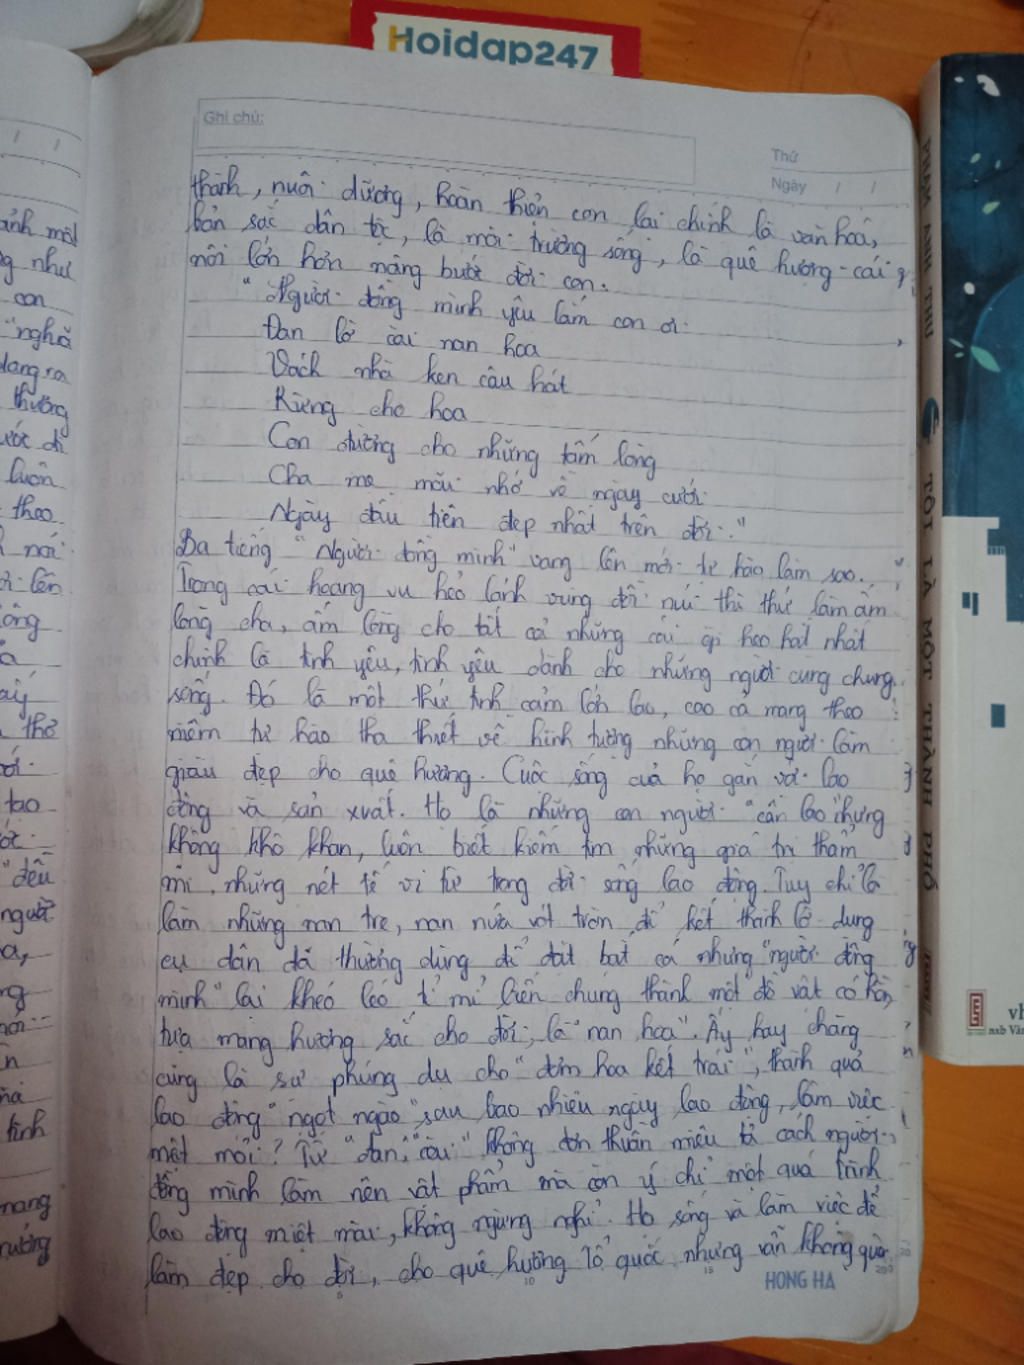 Hoidap247
Ghi chú:
Thứ
Ngày / /
thành, nuôi dưỡng, hoàn thiện con lại chính là văn hoá,
bản sắc dân tộc, là môi trường sống, là quê hương - cái
nôi lớn hơn nâng bước đời con.
"Người đồng mình yêu lắm con ơi
Đan lờ cài nan hoa
Vách nhà ken câu hát
Rừng cho hoa
Con đường cho những tấm lòng
Cha mẹ mãi nhớ về ngày cưới
Ngày đầu tiên đẹp nhất trên đời."
Ba tiếng "Người đồng mình" vang lên mới tự hào làm sao.
Trong cái hoang vu hẻo lánh vùng đồi núi thì thứ làm ấm
lòng cha, ấm lòng cho tất cả những cái gì heo hắt nhất
chính là tình yêu, tình yêu dành cho những người cùng chung
sống. Đó là một thứ tình cảm lớn lao, cao cả mang theo
niềm tự hào tha thiết về hình tượng những con người làm
giàu đẹp cho quê hương. Cuộc sống của họ gắn với lao
động và sản xuất. Họ là những con người "cần lao" nhưng
không khô khan, luôn biết kiếm tìm những giá trị thẩm
mĩ, những nét tế vi từ trong đời sống lao động. Tuy chỉ là
làm những nan tre, nan nứa vót tròn để kết thành lờ dụng
cụ dân dã thường dùng để đặt bắt cá nhưng "người đồng
mình" lại khéo léo tỉ mỉ biến chúng thành một đồ vật có hồn,
tựa mang hương sắc cho đời, là "nan hoa". Ấy hay chăng
cũng là sự phúng dụ cho "đơm hoa kết trái", thành quả
lao động "ngọt ngào" sau bao nhiêu ngày lao động, làm việc
mệt mỏi? Từ "đan", "cài" không đơn thuần miêu tả cách người
đồng mình làm nên vật phẩm mà còn ý chỉ một quá trình
lao động miệt mài, không ngừng nghỉ. Họ sống và làm việc để
làm đẹp cho đời, cho quê hương Tổ quốc nhưng vẫn không quên
HONG HA
PHẠM ANH THƯ
TÔI LÀ MỘT THÀNH PHỐ